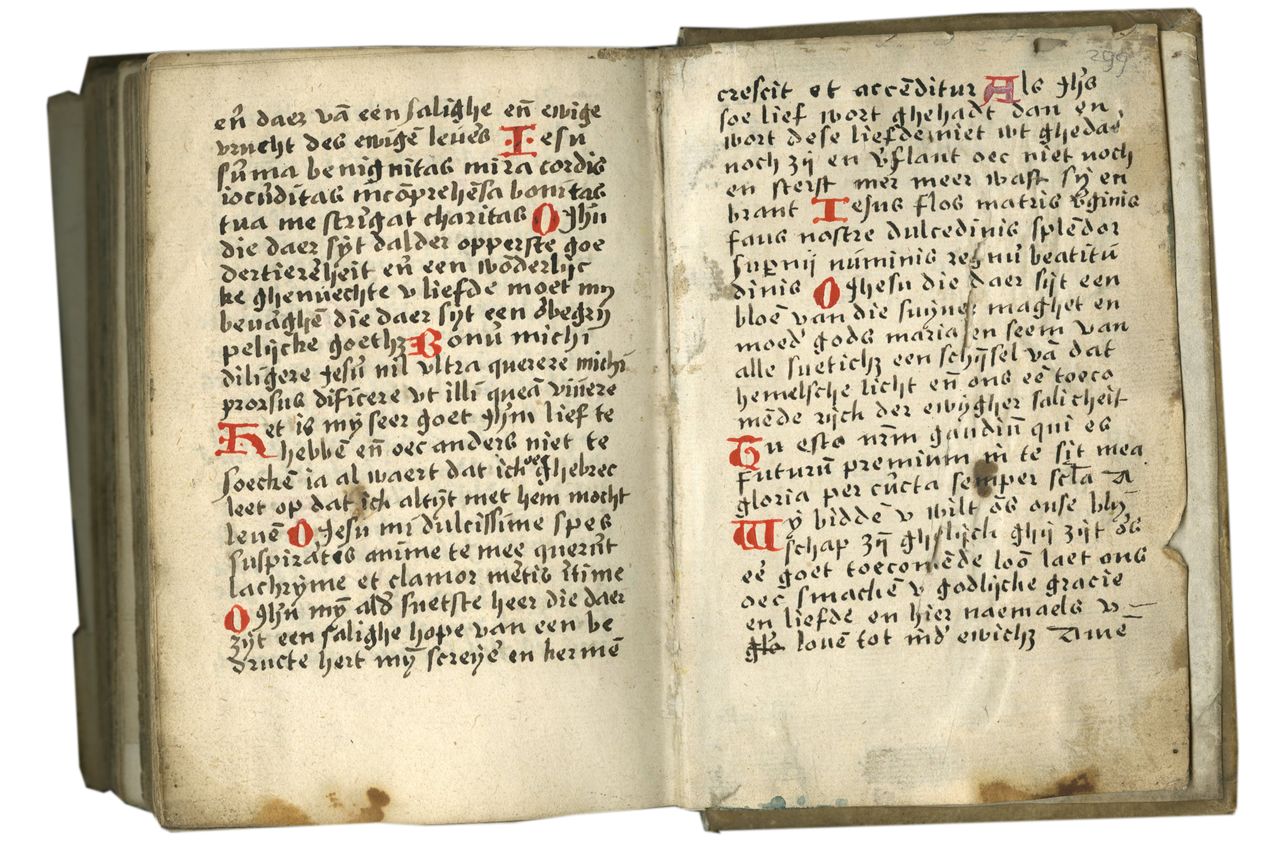 en̄ daer vā een salighe en̄ ewige
vrucht des ewigē leues Iesu
sūma benignitas mira cordis
iocūditas incōprehēsa bonitas
tua me strīgat charitas O Jhū
die daer sijt dalder opperste goe
dertierēheit en̄ een wōderlijc
ke ghenuechte v liefde moet my
beuāghē die daer sijt een ōbegrij
pelijcke goethz Bonū michi
diligere Jesū nil vltra querere michi
prorsus dificere vt illi queā viuere
Het is mij seer goet Jhm lief te
hebbē en̄ oec anders niet te
soeckē ia al waert dat ick oec ghebrec
leet op dat ick altijt met hem mocht
leuē O Jesu mi dulcissime spes
suspirātis anime te mee querūt
lachryme et clamor mētis ītime
O Jhū mij ald' suetste heer die daer
zijt een salighe hope van een be
druckte hert mij screijē en kermē
299
crescit et accēditur Als Jhs
soe lief wort ghehadt dan en
wort dese liefde niet wt ghedaē
noch zij en v'flaut oec niet noch
en sterft mer meer wast sij en
brant Iesus flos matris v'ginis
faus nostre dulcedinis splēdor
sup̄nij nūminis regnū beatitū
dinis O Jhesu die daer sijt een
bloē van die suijuer maghet en
moed' gods maria en seem van
alle suetichz een schijsel vā dat
hemelsche licht en̄ ons eē toeco
mēde rijck der ewijgher salicheit
Tu esto nr̄m gaudiū qui es
futurū premium in te sit mea
gloria per cūcta semper scl̄a A
Wij biddē v wilt ōs onse blij
schap zij ghelijck ghij zijt ōs
eē goet toecomēde loō laet ons
oec smackē v godlijcke gracie
en liefde en hier naemaels v
louē tot īnd' ewichz Amē